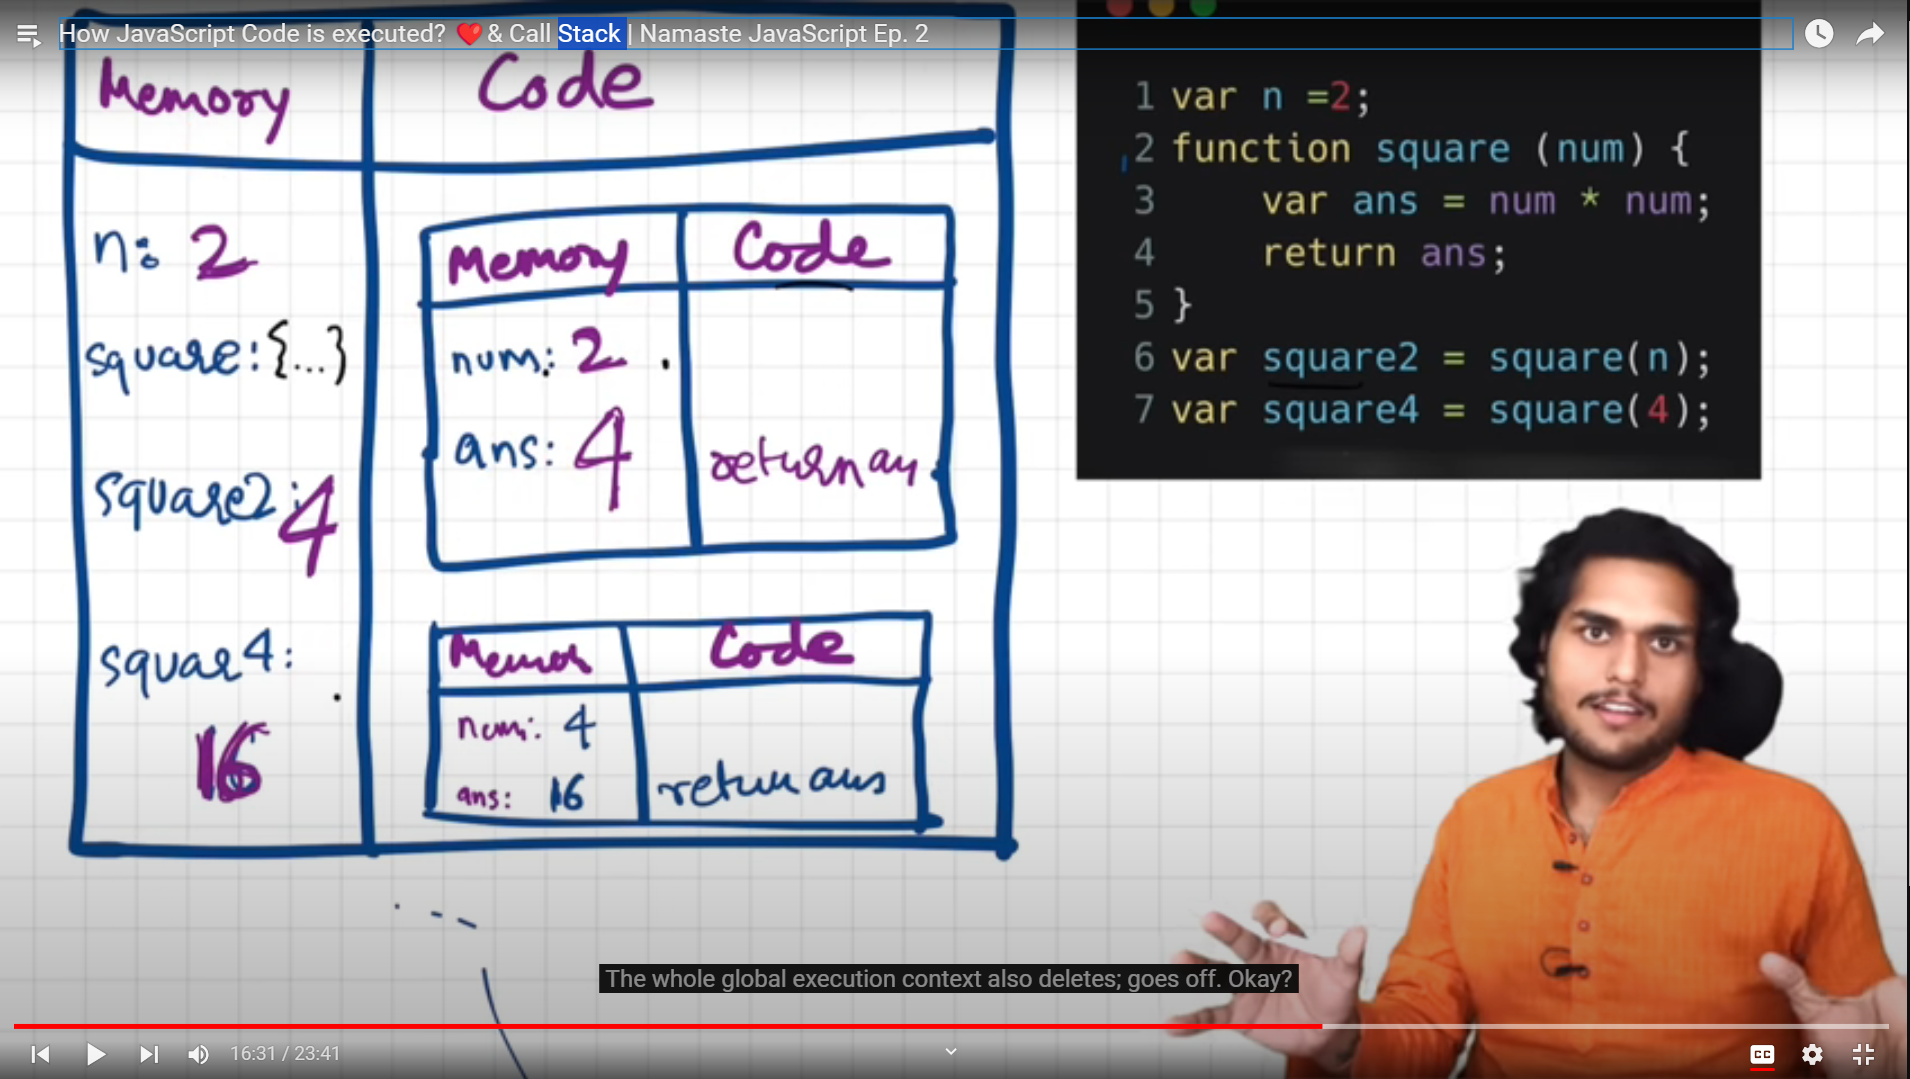 How JavaScript Code is executed? ❤️ & Call Stack | Namaste JavaScript Ep. 2
Memory Code
n: 2
square: {...}
square2: 4
squar4:
16
Memory Code
num: 2
ans: 4
return an
Memor Code
num: 4
ans: 16
return ans
1 var n =2;
2 function square (num) {
3 var ans = num * num;
4 return ans;
5 }
6 var square2 = square(n);
7 var square4 = square(4);
The whole global execution context also deletes; goes off. Okay?
16:31 / 23:41
CC